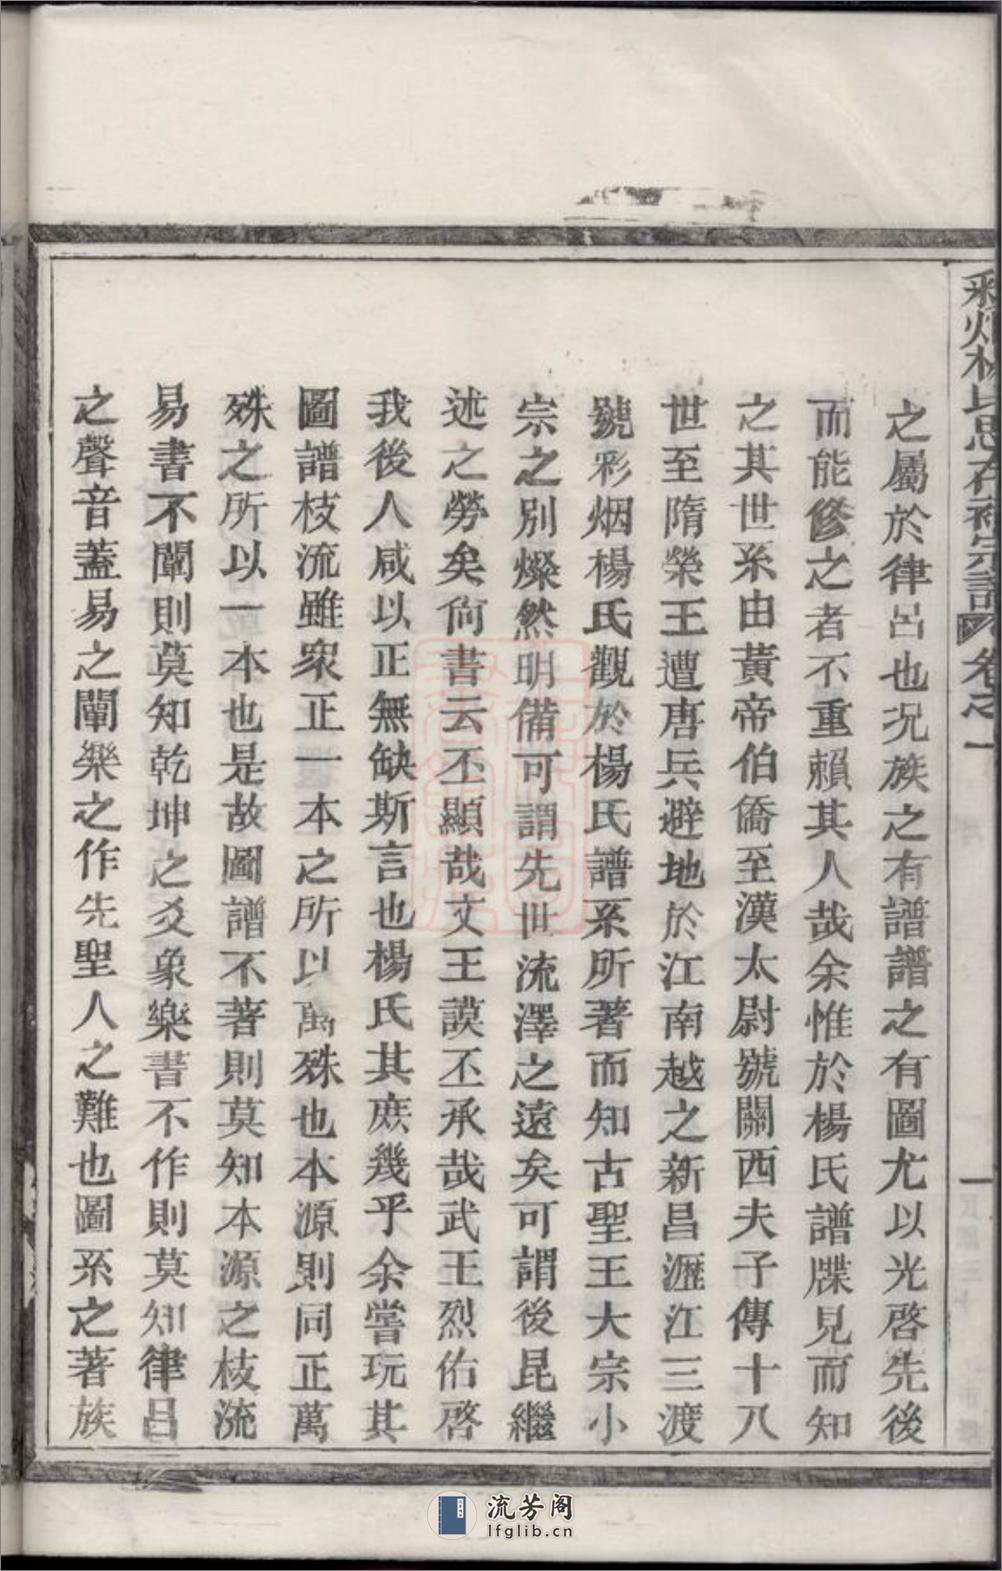 彩烟楊氏思在祠宗譜 卷之一
一
之屬於律呂也况族之有譜譜之有圖尤以光啓先後
而能修之者不重賴其人哉余惟於楊氏譜牒見而知
之其世系由黃帝伯僑至漢太尉號關西夫子傳十八
世至隋榮王遭唐兵避地於江南越之新昌瀝江三渡
號彩烟楊氏觀於楊氏譜系所著而知古聖王大宗小
宗之別燦然明備可謂先世流澤之遠矣可謂後昆繼
述之勞矣尙書云丕顯哉文王謨丕承哉武王烈佑啓
我後人咸以正無缺斯言也楊氏其庶幾乎余嘗玩其
圖譜枝流雖衆正一本之所以萬殊也本源則同正萬
殊之所以一本也是故圖譜不著則莫知本源之枝流
易書不闡則莫知乾坤之爻象樂書不作則莫知律呂
之聲音蓋易之闡樂之作先聖人之難也圖系之著族
流芳阁
lfglib.cn